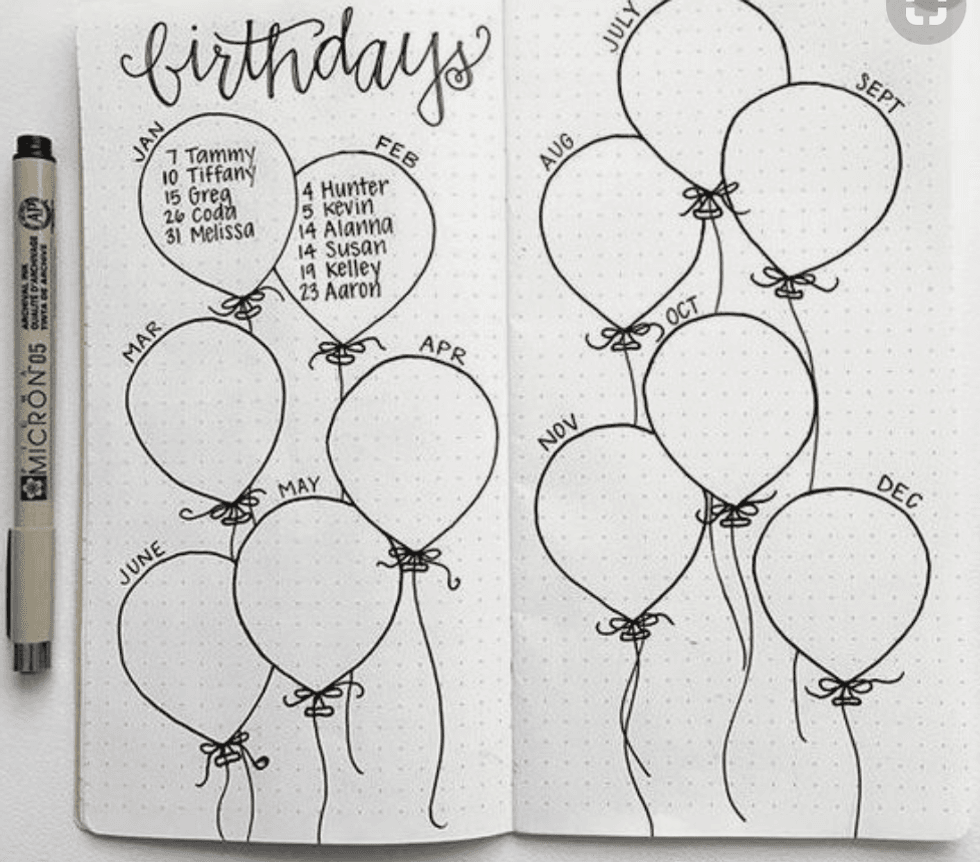 birthdays
JAN
7 Tammy
10 Tiffany
15 Greg
26 Coda
31 Melissa
FEB
4 Hunter
5 Kevin
14 Alanna
14 Susan
19 Kelley
23 Aaron
MAR
APR
MAY
JUNE
JULY
SEPT
AUG
OCT
NOV
DEC
MICRON 05
ARCHIVAL INK
QUALITÉ D'ARCHIVAGE
TINTA DE ARCHIVE